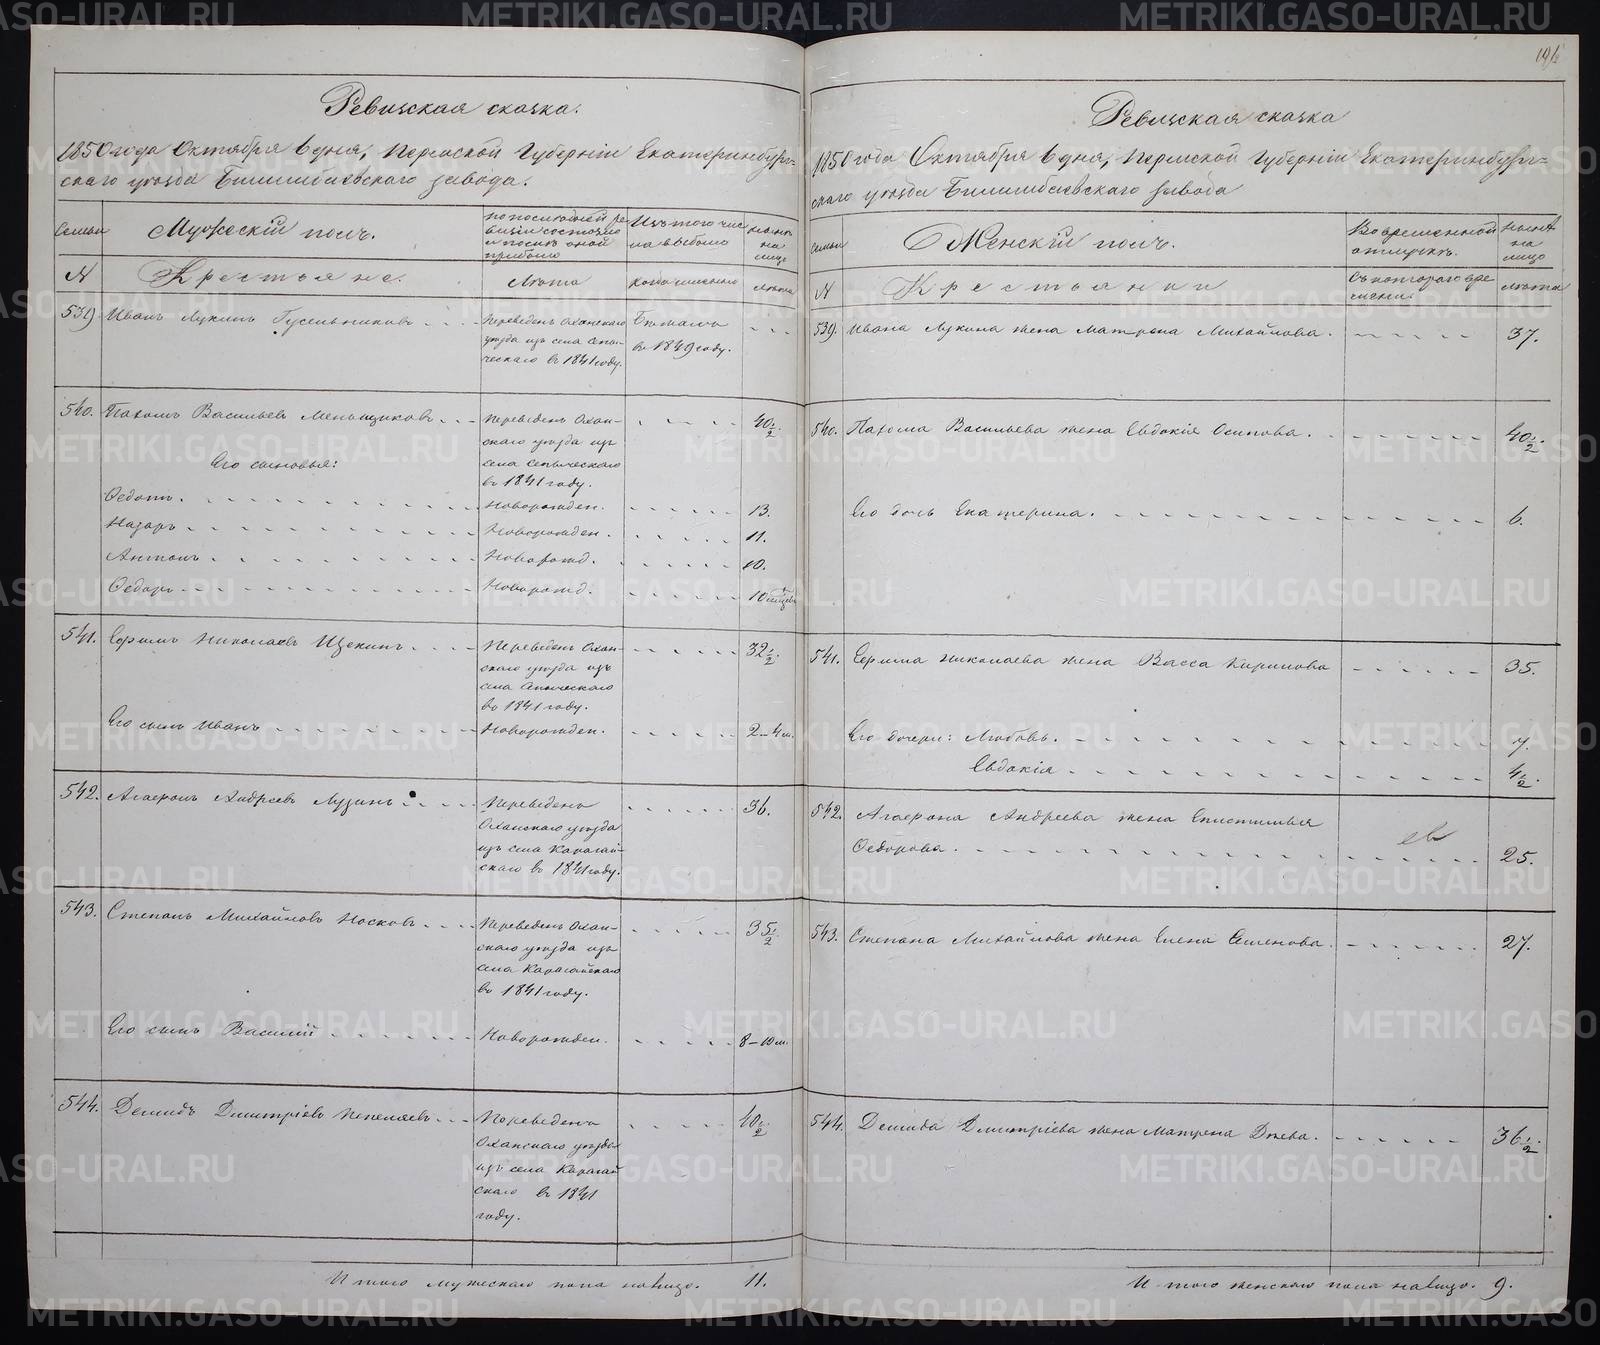 Ревизская сказка.
1850 года Октября 6 дня, Пермской Губерніи Екатеринбург=
скаго уѣзда Билимбаевскаго завода.
Семьи
Мужескій полъ.
По последней ре
визіи состояло
и после оной
прибыло
Изъ того чис
ла выбыло
Нынѣ
на
лицо
N
Крестьяне.
Лѣта
Когда именно
Лѣта
539. Иванъ Лукинъ Гусельниковъ
Переведенъ Оханскаго
уѣзда изъ села Сепы-
ческаго въ 1841 году.
Бѣжалъ
въ 1849 году.
540. Пахомъ Васильевъ Меньщиковъ
Переведенъ Охан-
скаго уѣзда изъ
села Сепыческаго
въ 1841 году.
40 1/2.
Его сыновья:
Федотъ. Новорожден. 13.
Назаръ Новорожден. 11.
Антонъ Новорожд. 10.
Федоръ Новорожд. 10
541. Ефимъ Николаевъ Щекинъ
Переведенъ Охан-
скаго уѣзда изъ
села Сепыческаго
въ 1841 году.
32 1/2
Его сынъ Иванъ Новорожден. 2–4 м.
542. Агафонъ Андреевъ Лузинъ
Переведенъ
Оханскаго уѣзда
изъ села Карагай-
скаго въ 1841 году.
36.
543. Степанъ Михайловъ Носковъ
Переведенъ Охан-
скаго уѣзда изъ
села Карагайскаго
въ 1841 году.
35 1/2
Его сынъ Василий Новорожден. 8–10 м.
544. Демидъ Дмитріевъ Пепеляевъ
Переведенъ
Оханскаго уѣзда
изъ села Карагай
скаго въ 1841
году.
40 1/2
Итого мужескаго пола налицо. 11.
Ревизская сказка
1850 года Октября 6 дня, Пермской Губерніи Екатеринбург=
скаго уѣзда Билимбаевскаго завода
Семьи
Женскій полъ.
Во временной
отлучкѣ.
Нынѣ
на
лицо
N
Крестьянки
Съ котораго вре
мени.
Лѣта
539. Ивана Лукина жена Матрена Михайлова. 37.
540. Пахома Васильева жена Евдокія Осипова. 40 1/2.
Его дочь Екатерина. 6.
541. Ефима Николаева жена Васса Кирилова 35.
Его дочери: Любовь. 7.
Евдокія 4 1/2.
542. Агафона Андреева жена Епистимья
Федорова. 25.
543. Степана Михайлова жена Елена Семенова. 27.
544. Демида Дмитріева жена Матрена 36 1/2.
Итого женскаго пола налицо. 9.
METRIKI.GASO-URAL.RU